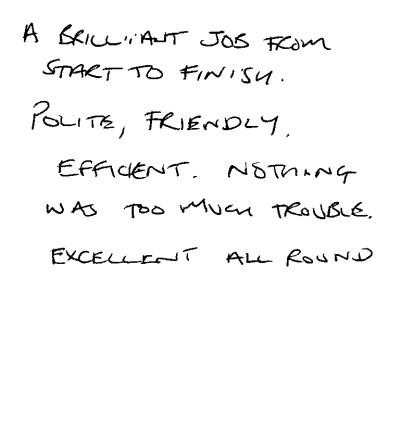 A BRILLIANT JOB FROM
START TO FINISH.
POLITE, FRIENDLY.
EFFICIENT. NOTHING
WAS TOO MUCH TROUBLE.
EXCELLENT ALL ROUND